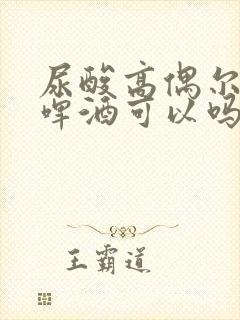 尿酸高偶尔
啤酒可以吗
王霸道